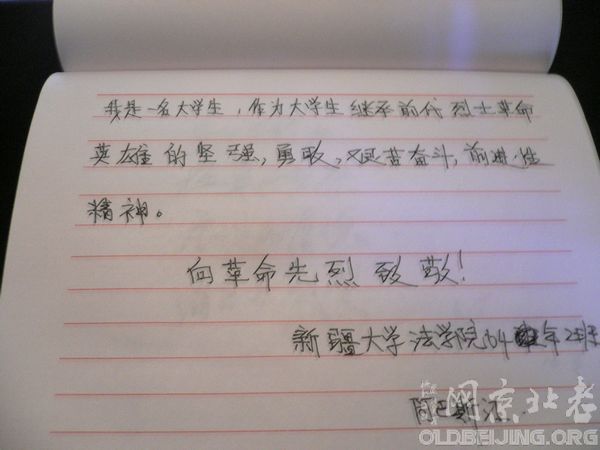 我是一名大学生,作为大学生继承前代烈士革命
英雄的坚强,勇敢,艰苦奋斗,前进性
精神。
向革命先烈致敬!
新疆大学法学院04 年2班
阿巴斯江
老北京网
OLDBEIJING.ORG